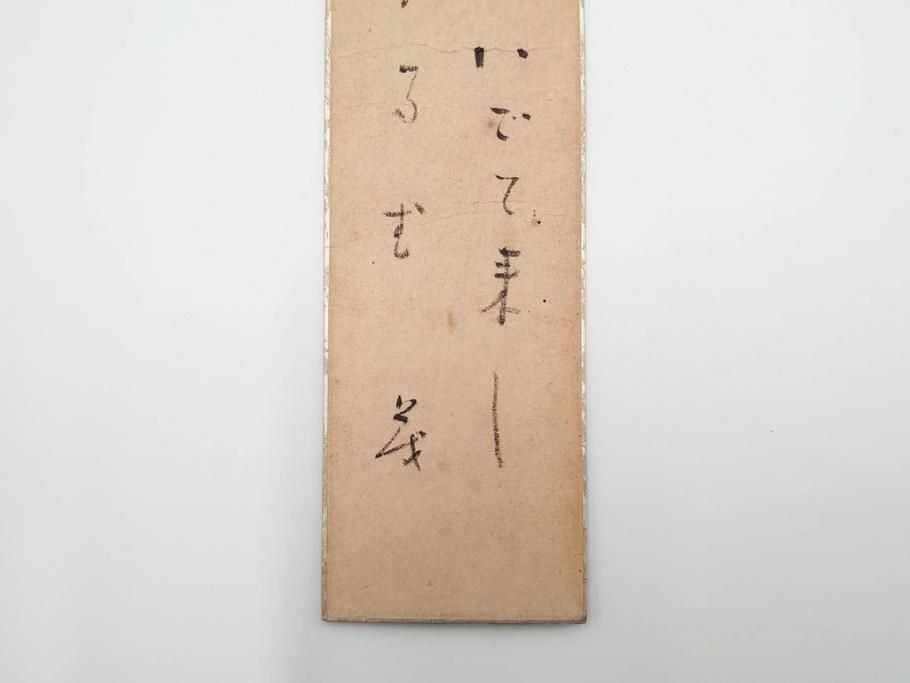 いでて来し
るむ